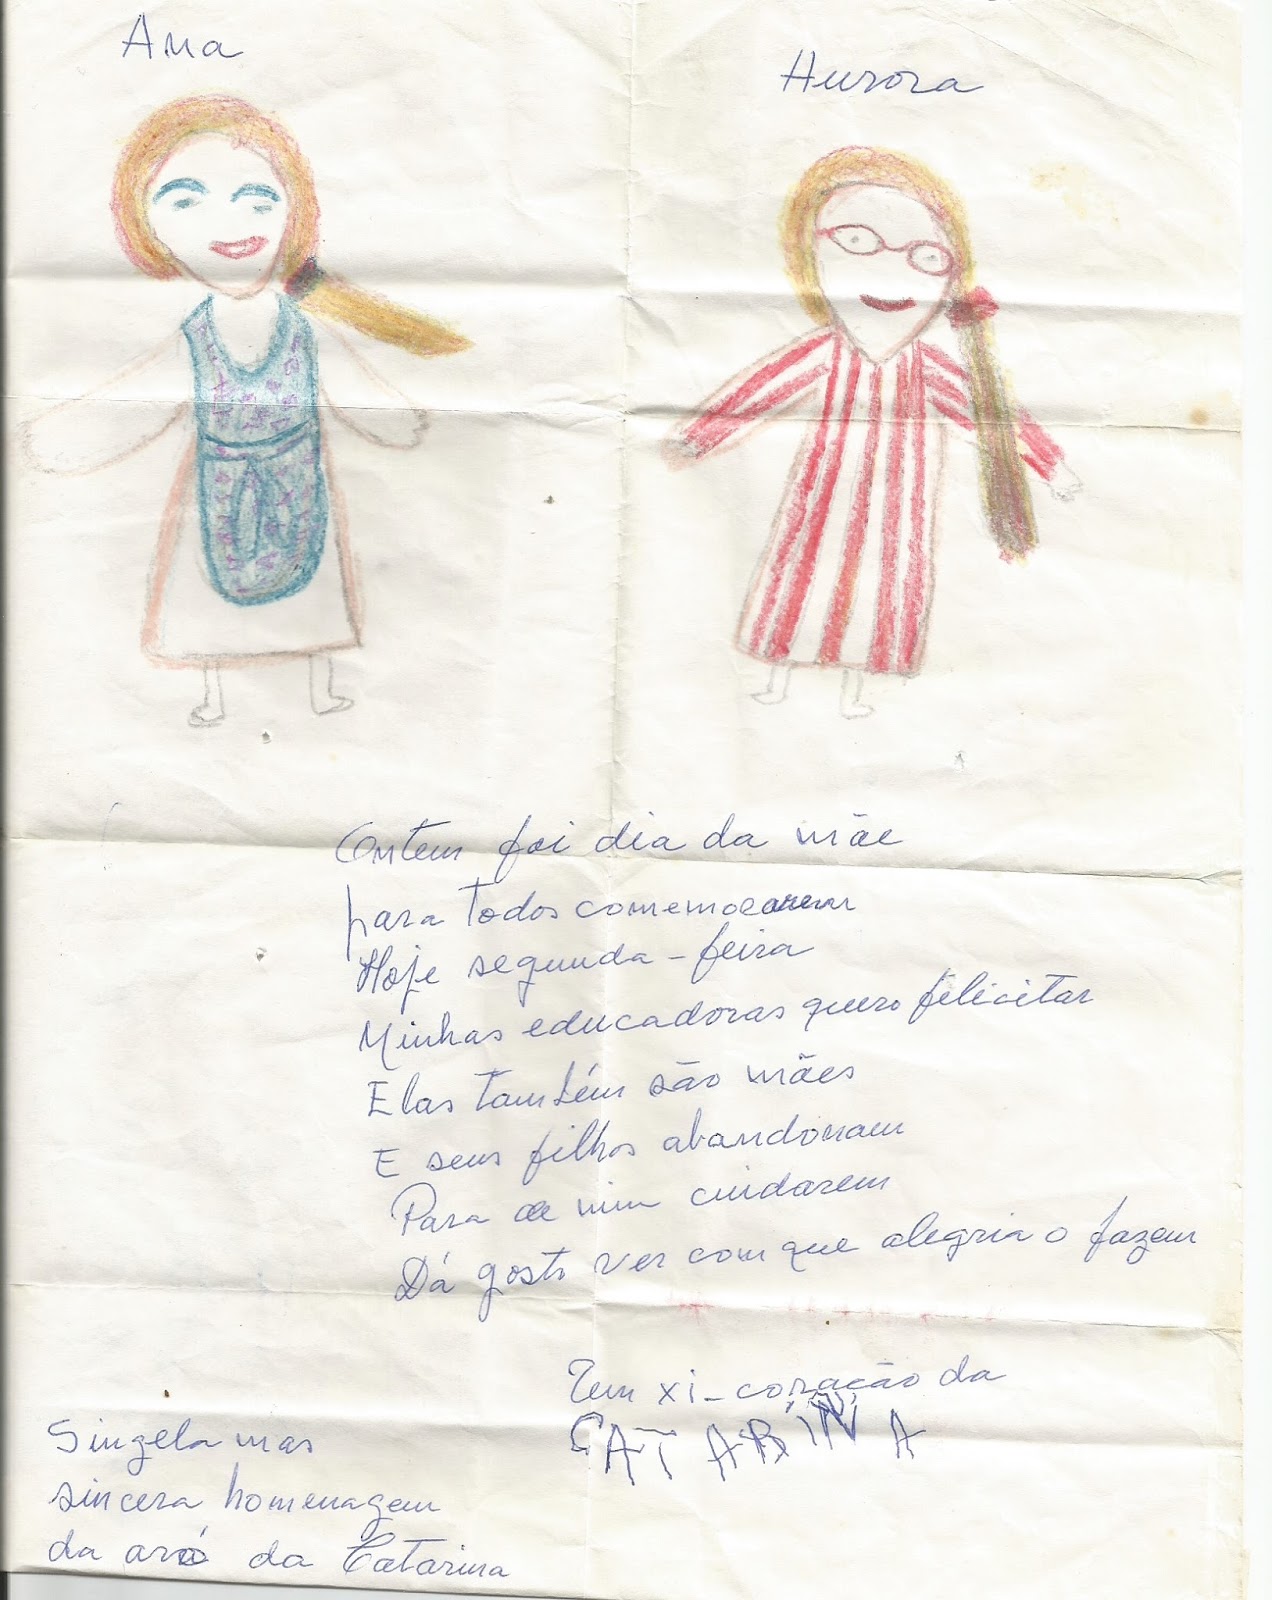 Ana
Aurora
Ontem foi dia da mãe
para todos comemorarem
Hoje segunda-feira
Minhas educadoras quero felicitar
Elas também são mães
E seus filhos abandonam
Para de mim cuidarem
Dá gosto ver com que alegria o fazem
Um xi-coração da
CATARINA
Singela mas
sincera homenagem
da avó da Catarina